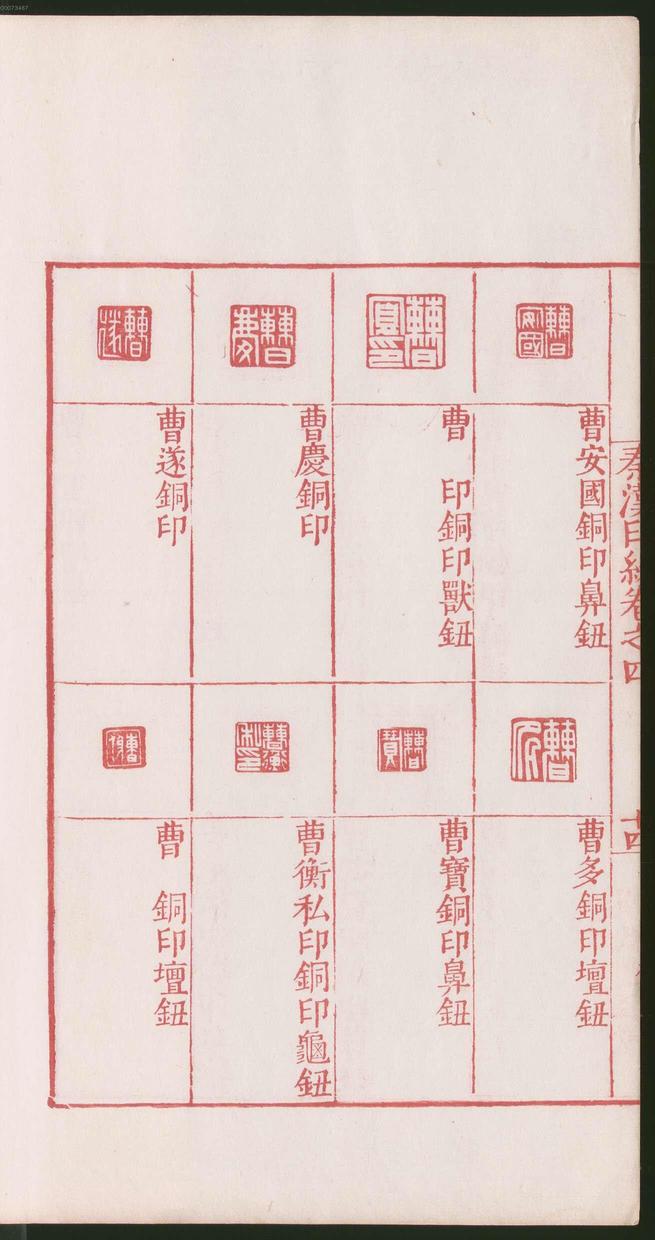 00073467
秦漢印統卷之四
十四
曹安國
曹安國銅印鼻鈕
曹 印銅印獸鈕
曹慶
曹慶銅印
曹遂
曹遂銅印
曹多銅印壇鈕
曹寶
曹寶銅印鼻鈕
曹衡私印
曹衡私印銅印龜鈕
曹 銅印壇鈕